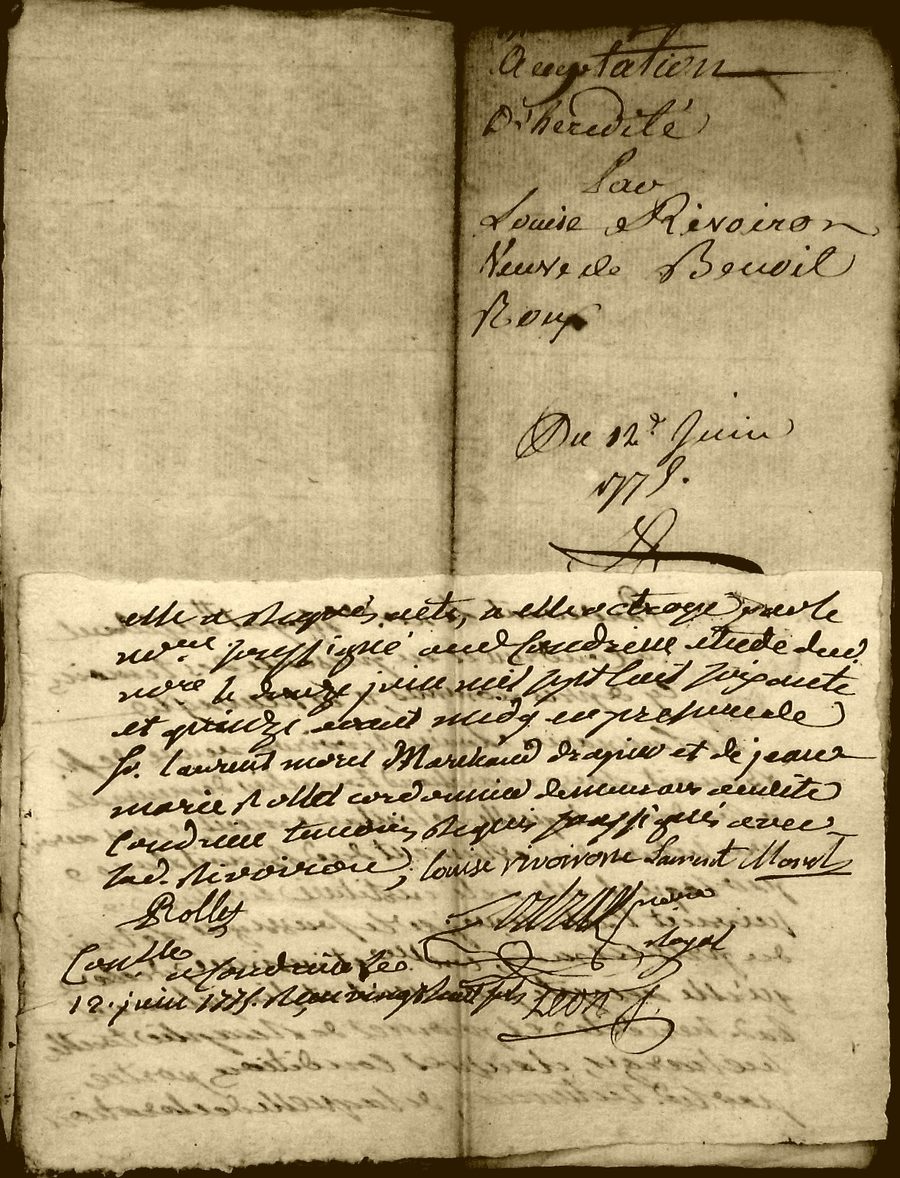 Acceptation
D'heredité
Par
Louise Rivoiron
Veuve de Benoit
Roux
Du 12e Juin
1775.
elle a Requis acte, a elle octroyé par le
nore soussigné aud Condrieu etude dud
nore le douze juin mil sept cent soixante
et quinze avant midy en presence de
Sr. laurent morel Marchand drapier et de jean
marie Rollet cordonnier demeurans audite
Condrieu temoins Requis soussignés avec
lad. Rivoiron, louise rivoirone Laurent Morel
Rollet
notre
Royal
Conllé a Condrieu Le
12. juin 1775. Reçu vingt huit sols Leon